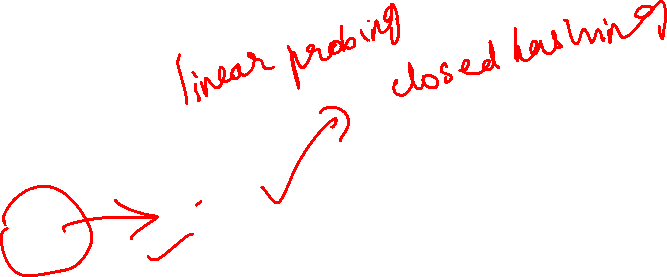 linear probing
closed hashing